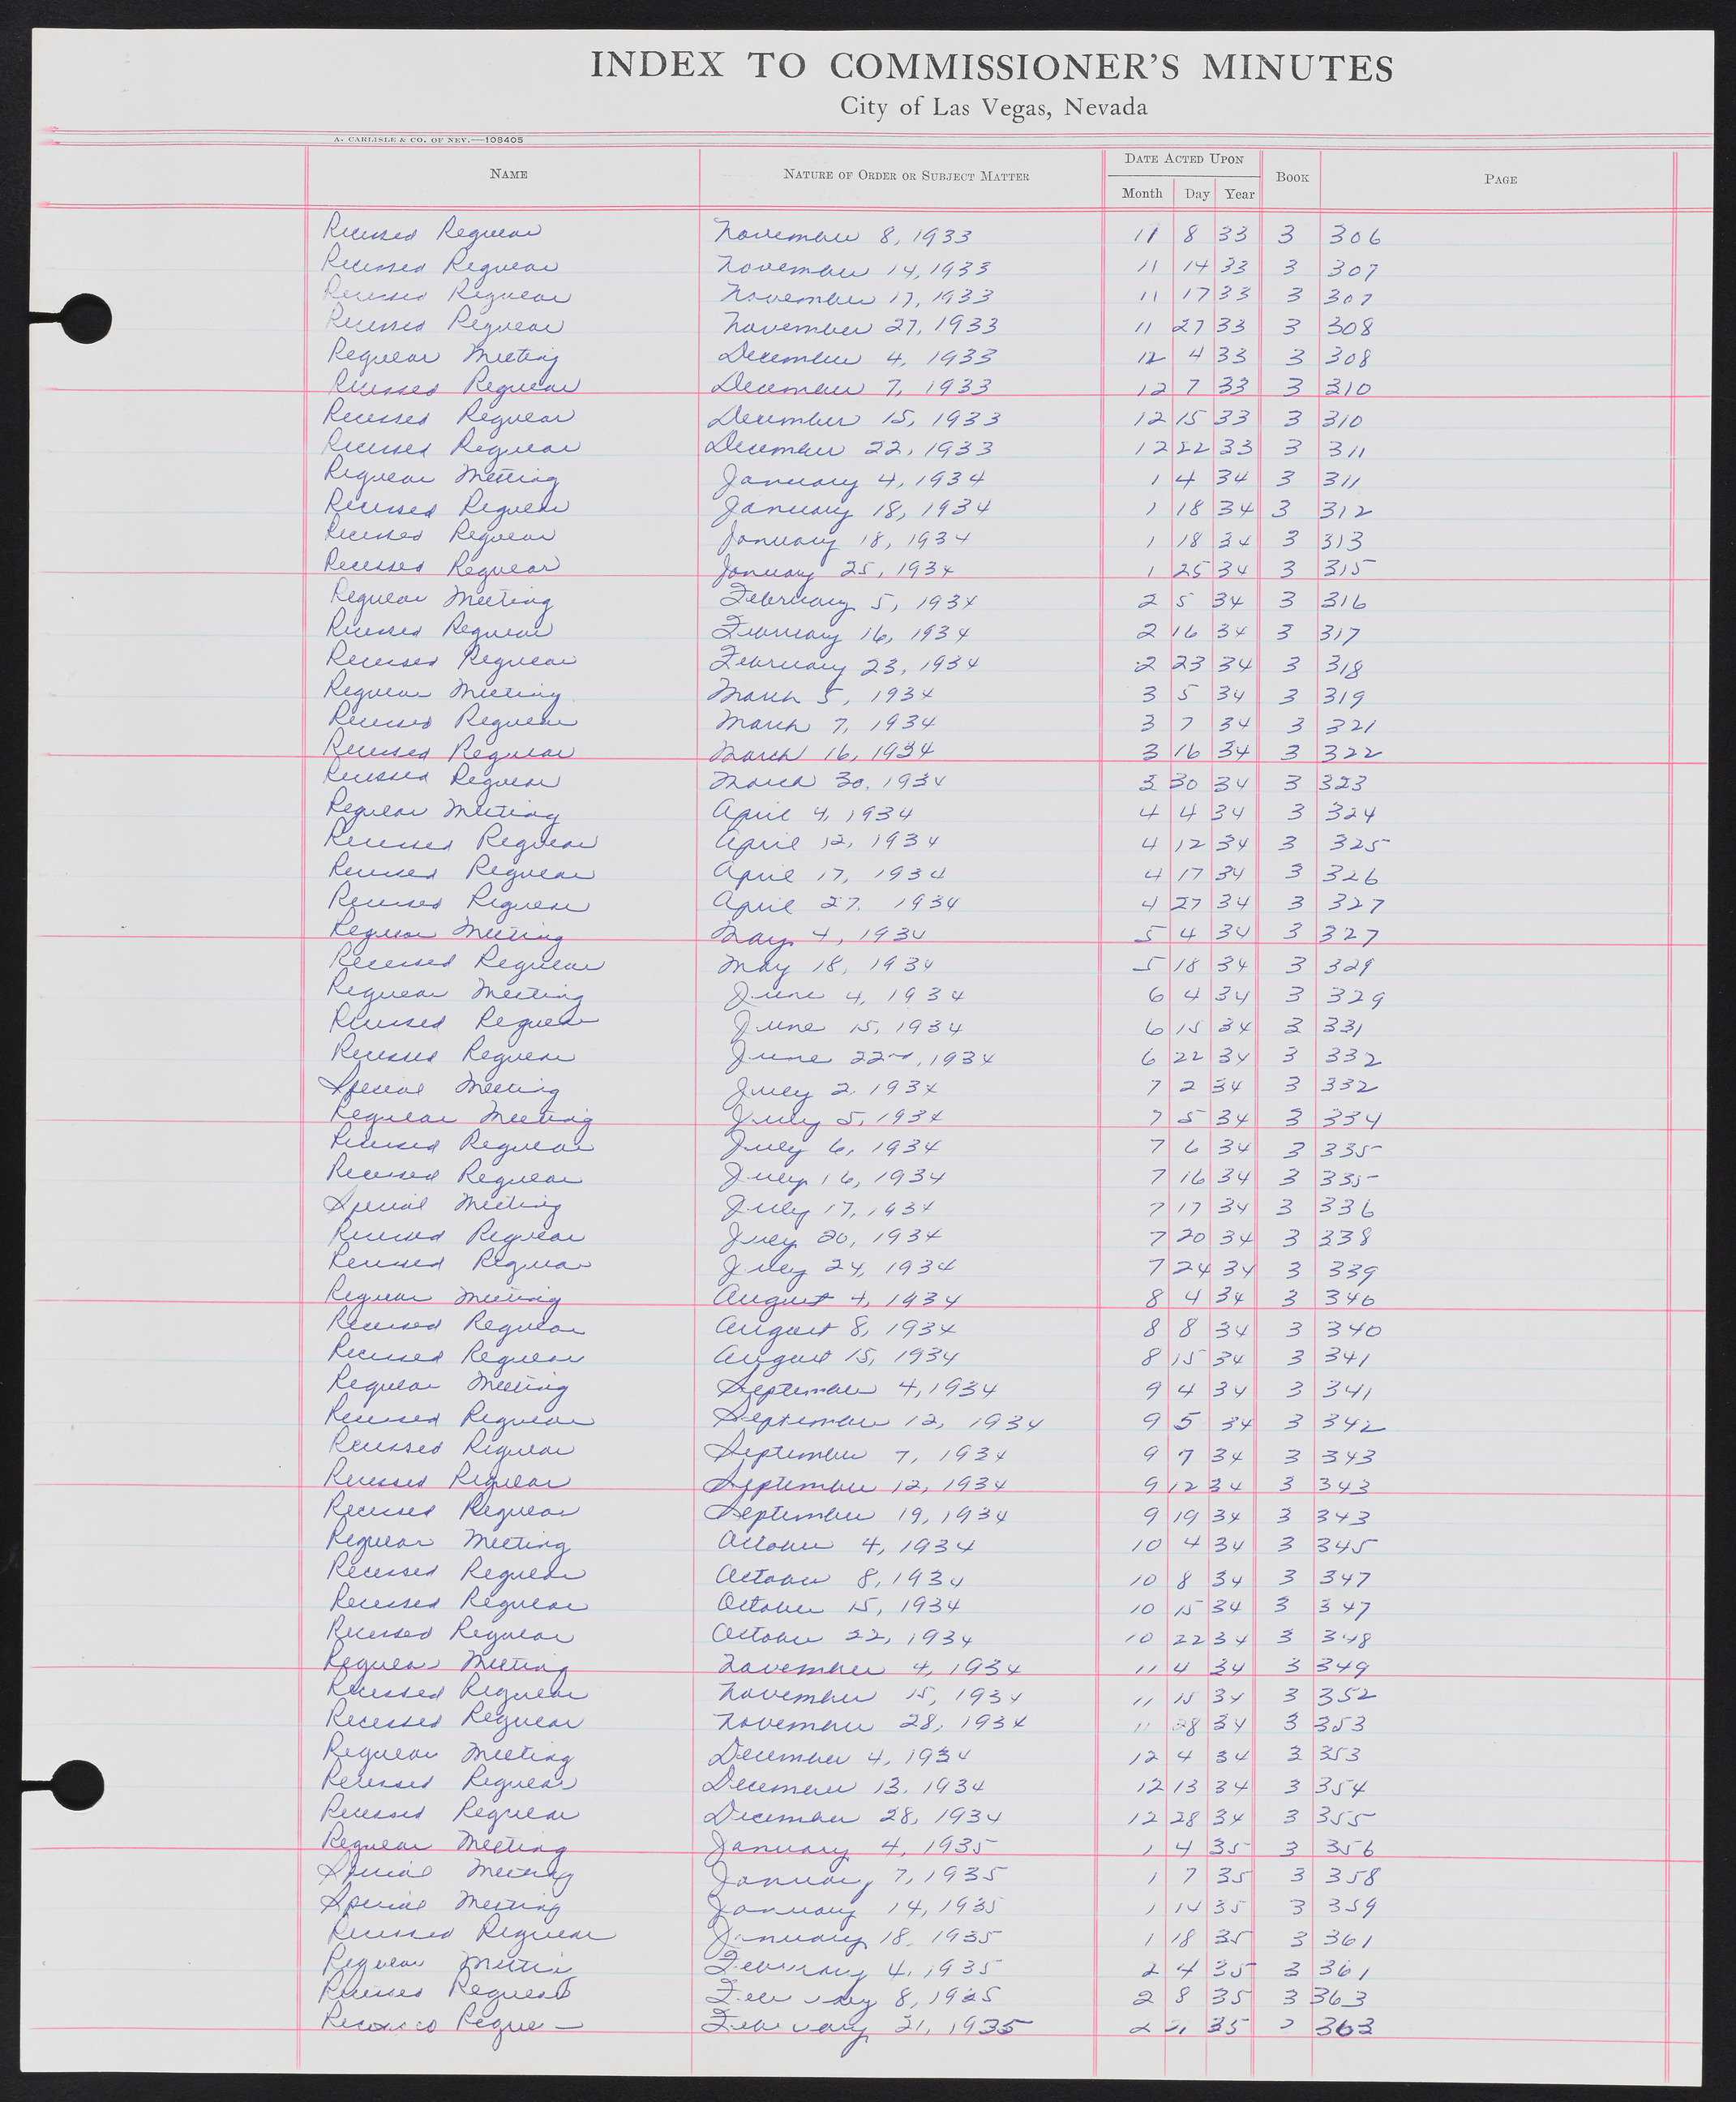 INDEX TO COMMISSIONER'S MINUTES
City of Las Vegas, Nevada
A. CARLISLE & CO. OF NEV.—108405
NAME NATURE OF ORDER OR SUBJECT MATTER DATE ACTED UPON BOOK PAGE
Month Day Year
Recessed Regular November 8, 1933 11 8 33 3 306
Recessed Regular November 14, 1933 11 14 33 3 307
Recessed Regular November 17, 1933 11 17 33 3 307
Recessed Regular November 27, 1933 11 27 33 3 308
Regular Meeting December 4, 1933 12 4 33 3 308
Recessed Regular December 7, 1933 12 7 33 3 310
Recessed Regular December 15, 1933 12 15 33 3 310
Recessed Regular December 22, 1933 12 22 33 3 311
Regular Meeting January 4, 1934 1 4 34 3 311
Recessed Regular January 18, 1934 1 18 34 3 312
Recessed Regular January 18, 1934 1 18 34 3 313
Recessed Regular January 25, 1934 1 25 34 3 315
Regular Meeting February 5, 1934 2 5 34 3 316
Recessed Regular February 16, 1934 2 16 34 3 317
Recessed Regular February 23, 1934 2 23 34 3 318
Regular Meeting March 5, 1934 3 5 34 3 319
Recessed Regular March 7, 1934 3 7 34 3 321
Recessed Regular March 16, 1934 3 16 34 3 322
Recessed Regular March 30, 1934 3 30 34 3 323
Regular Meeting April 4, 1934 4 4 34 3 324
Recessed Regular April 12, 1934 4 12 34 3 325
Recessed Regular April 17, 1934 4 17 34 3 326
Recessed Regular April 27, 1934 4 27 34 3 327
Regular Meeting May 4, 1934 5 4 34 3 327
Recessed Regular May 18, 1934 5 18 34 3 329
Regular Meeting June 4, 1934 6 4 34 3 329
Recessed Regular June 15, 1934 6 15 34 3 331
Recessed Regular June 22nd, 1934 6 22 34 3 332
Special Meeting July 2, 1934 7 2 34 3 332
Regular Meeting July 5, 1934 7 5 34 3 334
Recessed Regular July 6, 1934 7 6 34 3 335
Recessed Regular July 16, 1934 7 16 34 3 335
Special Meeting July 17, 1934 7 17 34 3 336
Recessed Regular July 20, 1934 7 20 34 3 338
Recessed Regular July 24, 1934 7 24 34 3 339
Regular Meeting August 4, 1934 8 4 34 3 340
Recessed Regular August 8, 1934 8 8 34 3 340
Recessed Regular August 15, 1934 8 15 34 3 341
Regular Meeting September 4, 1934 9 4 34 3 341
Recessed Regular September 12, 1934 9 5 34 3 342
Recessed Regular September 7, 1934 9 7 34 3 343
Recessed Regular September 12, 1934 9 12 34 3 343
Recessed Regular September 19, 1934 9 19 34 3 343
Regular Meeting October 4, 1934 10 4 34 3 345
Recessed Regular October 8, 1934 10 8 34 3 347
Recessed Regular October 15, 1934 10 15 34 3 347
Recessed Regular October 22, 1934 10 22 34 3 348
Regular Meeting November 4, 1934 11 4 34 3 349
Recessed Regular November 15, 1934 11 15 34 3 352
Recessed Regular November 28, 1934 11 28 34 3 353
Regular Meeting December 4, 1934 12 4 34 3 353
Recessed Regular December 13, 1934 12 13 34 3 354
Recessed Regular December 28, 1934 12 28 34 3 355
Regular Meeting January 4, 1935 1 4 35 3 356
Special Meeting January 7, 1935 1 7 35 3 358
Special Meeting January 14, 1935 1 14 35 3 359
Recessed Regular January 18, 1935 1 18 35 3 361
Regular Meeting February 4, 1935 2 4 35 3 361
Recessed Regular February 8, 1935 2 8 35 3 363
Recessed Regular February 21, 1935 2 21 35 3 363